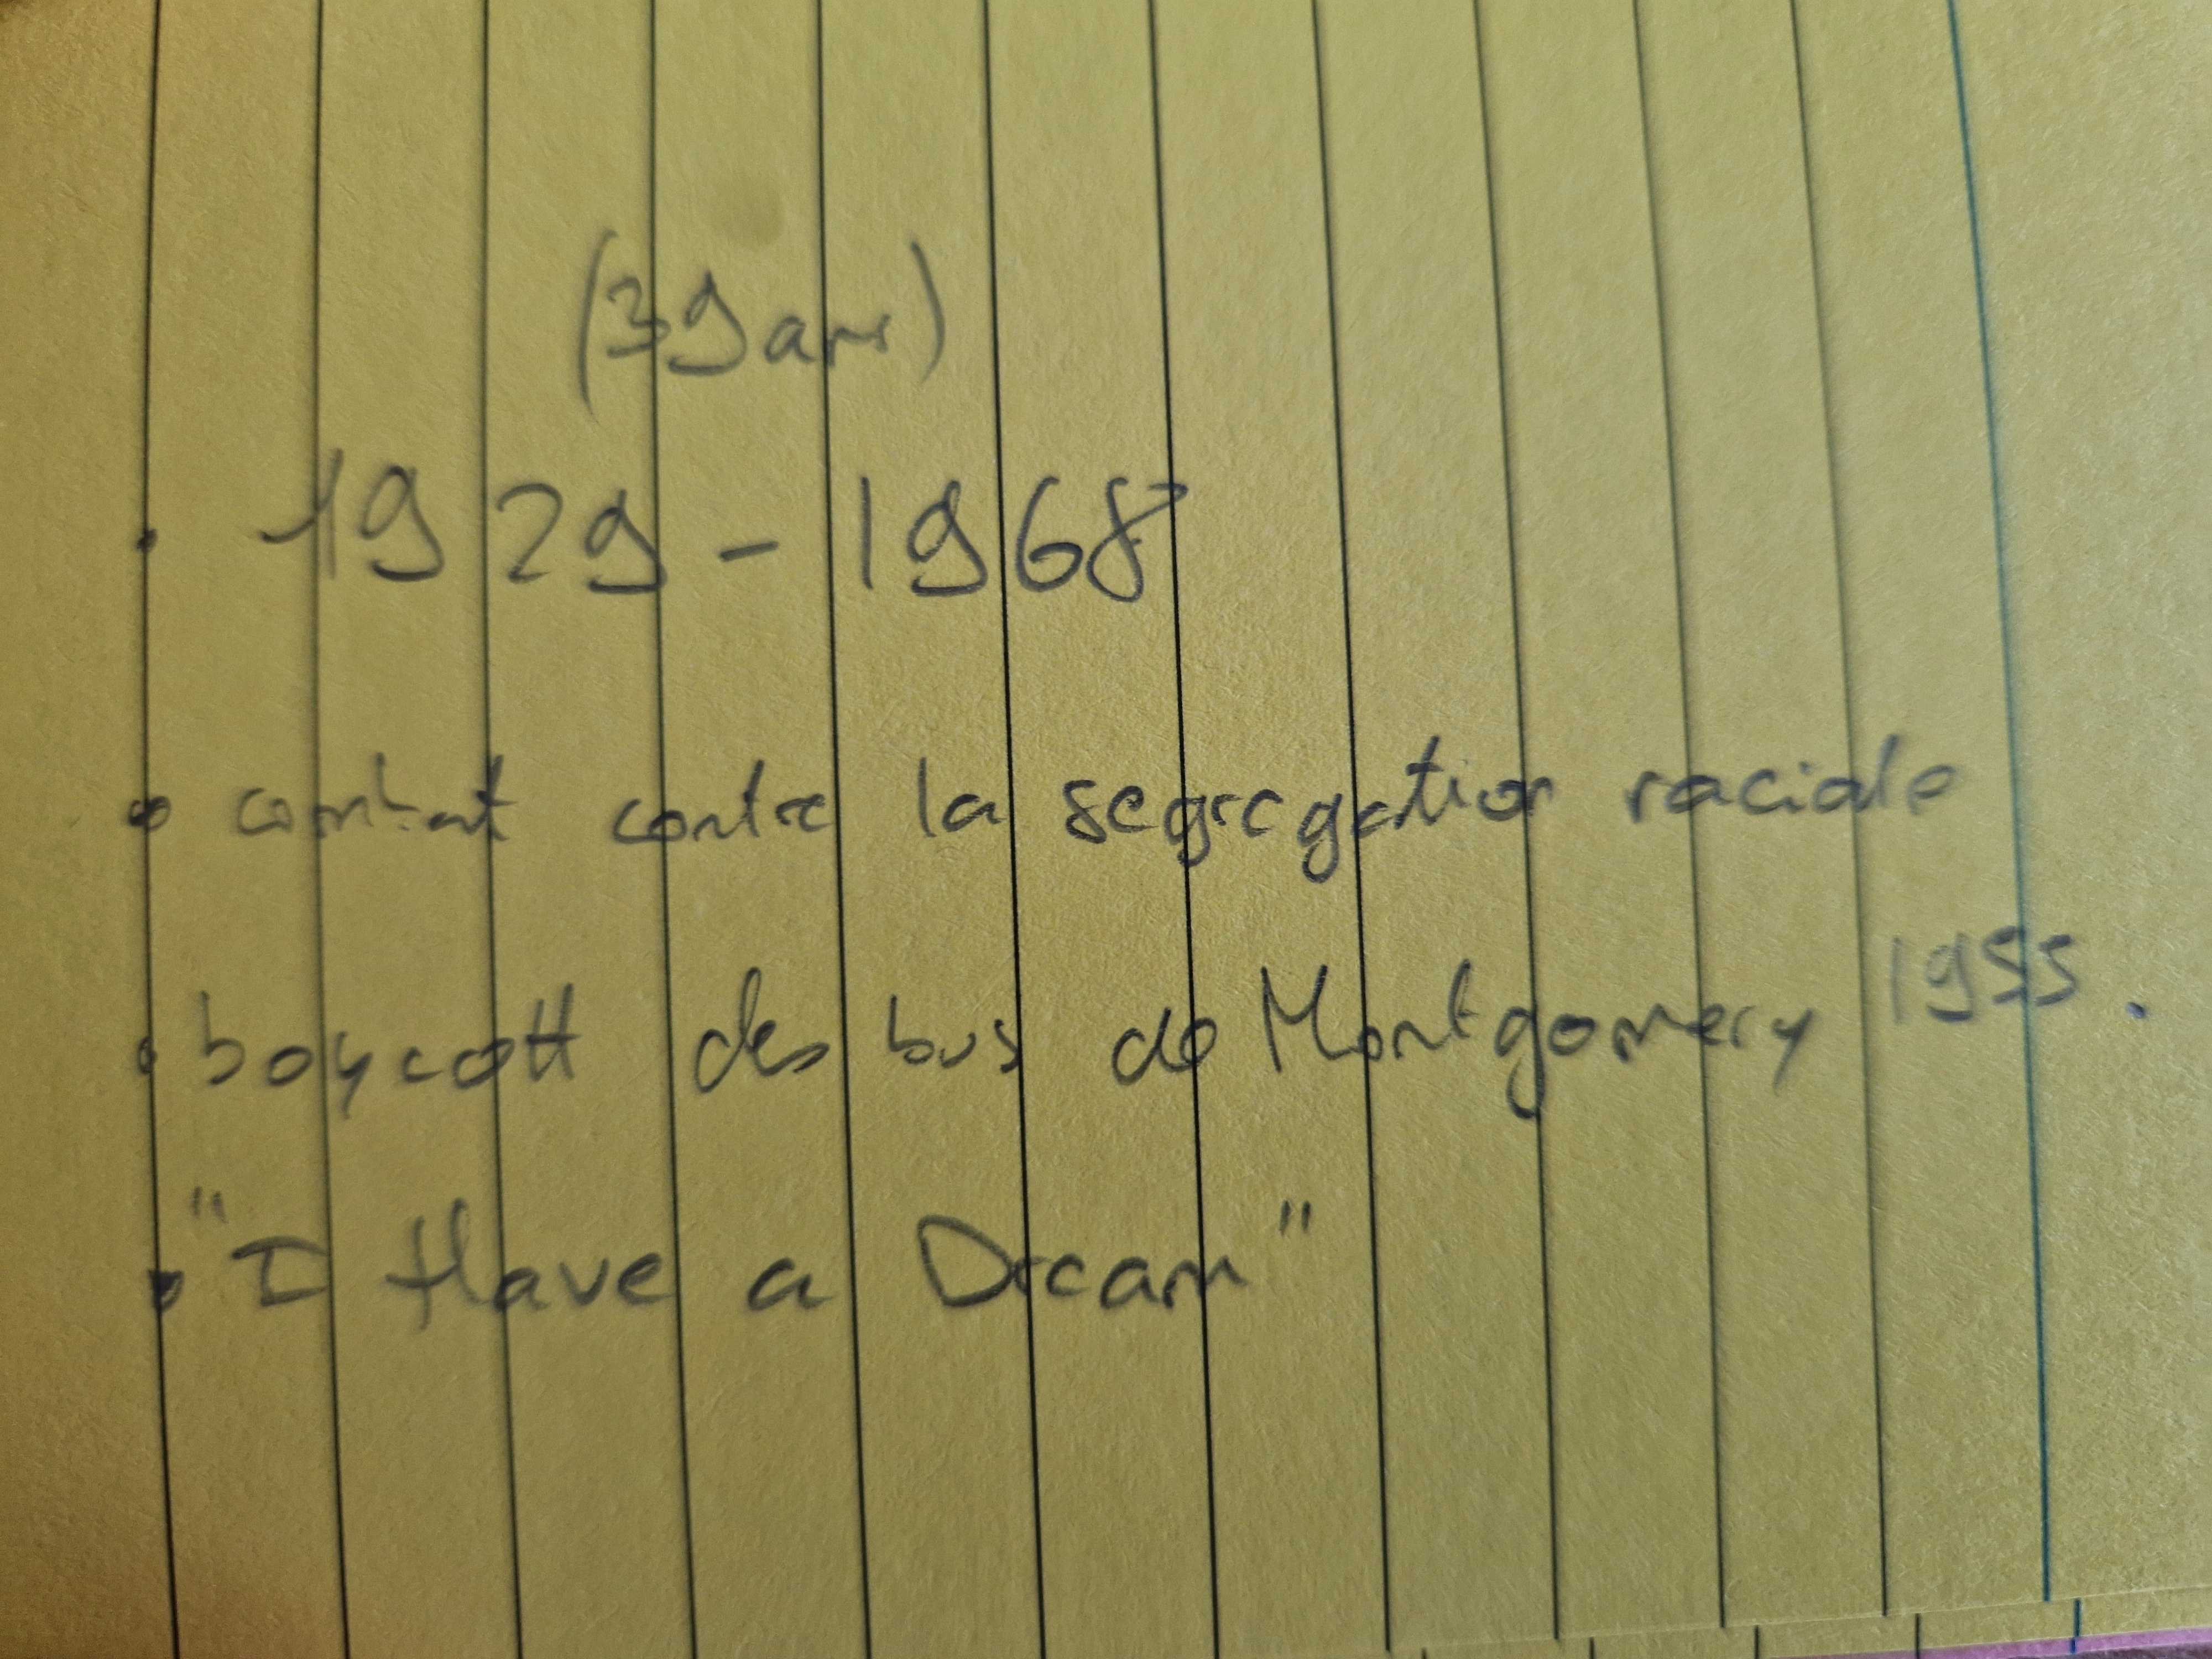 (39 ans)
• 1929 - 1968
• combat contre la segregation raciale
• boycott des bus de Montgomery 1955.
• "I Have a Dream"